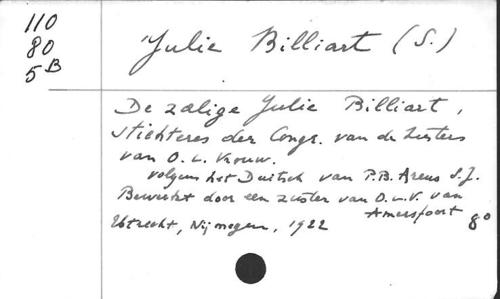 110
80
5B
Julie Billiart (S.)
De zalige Julie Billiart,
stichteres der Congr. van de Zusters
van O. L. Vrouw.
volgens het Duitsch van P.B. Arens S.J.
Bewerkt door een zuster van O.L.V. van
Amersfoort 8°
Utrecht, Nijmegen, 1922